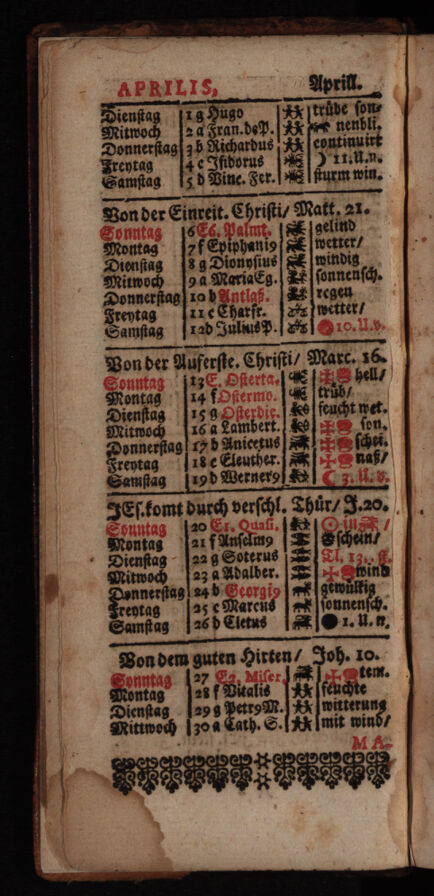 APRILIS, Aprill.
Dienstag 1 g Hugo trübe son-
Mitwoch 2 a Fran. de P. nenbli.
Donnerstag 3 b Richardus continuirt
Freytag 4 c Isidorus 11. U. n.
Samstag 5 d Vinc. Fer. sturm win.
Von der Einreit. Christi/ Matt. 21.
Sonntag 6 E6. Palmt. gelind
Montag 7 f Epiphani9 wetter/
Dienstag 8 g Dionysius windig
Mitwoch 9 a Maria Eg. sonnensch.
Donnerstag 10 b Antlaß. regen
Freytag 11 c Charfr. wetter/
Samstag 12 d Julius P. 10. U. v.
Von der Auferste. Christi/ Marc. 16.
Sonntag 13 E. Osterta. hell/
Montag 14 f Ostermo. trüb/
Dienstag 15 g Osterdie. feucht wet.
Mitwoch 16 a Lambert. son.
Donnerstag 17 b Anicetus schei.
Freytag 18 c Eleuther. naß/
Samstag 19 d Werner9 3. U. v.
JEs. komt durch verschl. Thür/ J. 20.
Sonntag 20 E1. Quasi. in /
Montag 21 f Anselm9 schein/
Dienstag 22 g Soterus Tl. 13.
Mitwoch 23 a Adalber. wind
Donnerstag 24 b Georgi9 gewülkig
Freytag 25 c Marcus sonnensch.
Samstag 26 d Cletus 1. U. n.
Von dem guten Hirten/ Joh. 10.
Sonntag 27 E2. Miser. tem.
Montag 28 f Vitalis feuchte
Dienstag 29 g Petr9 M. witterung
Mittwoch 30 a Cath. S. mit wind/
MA-